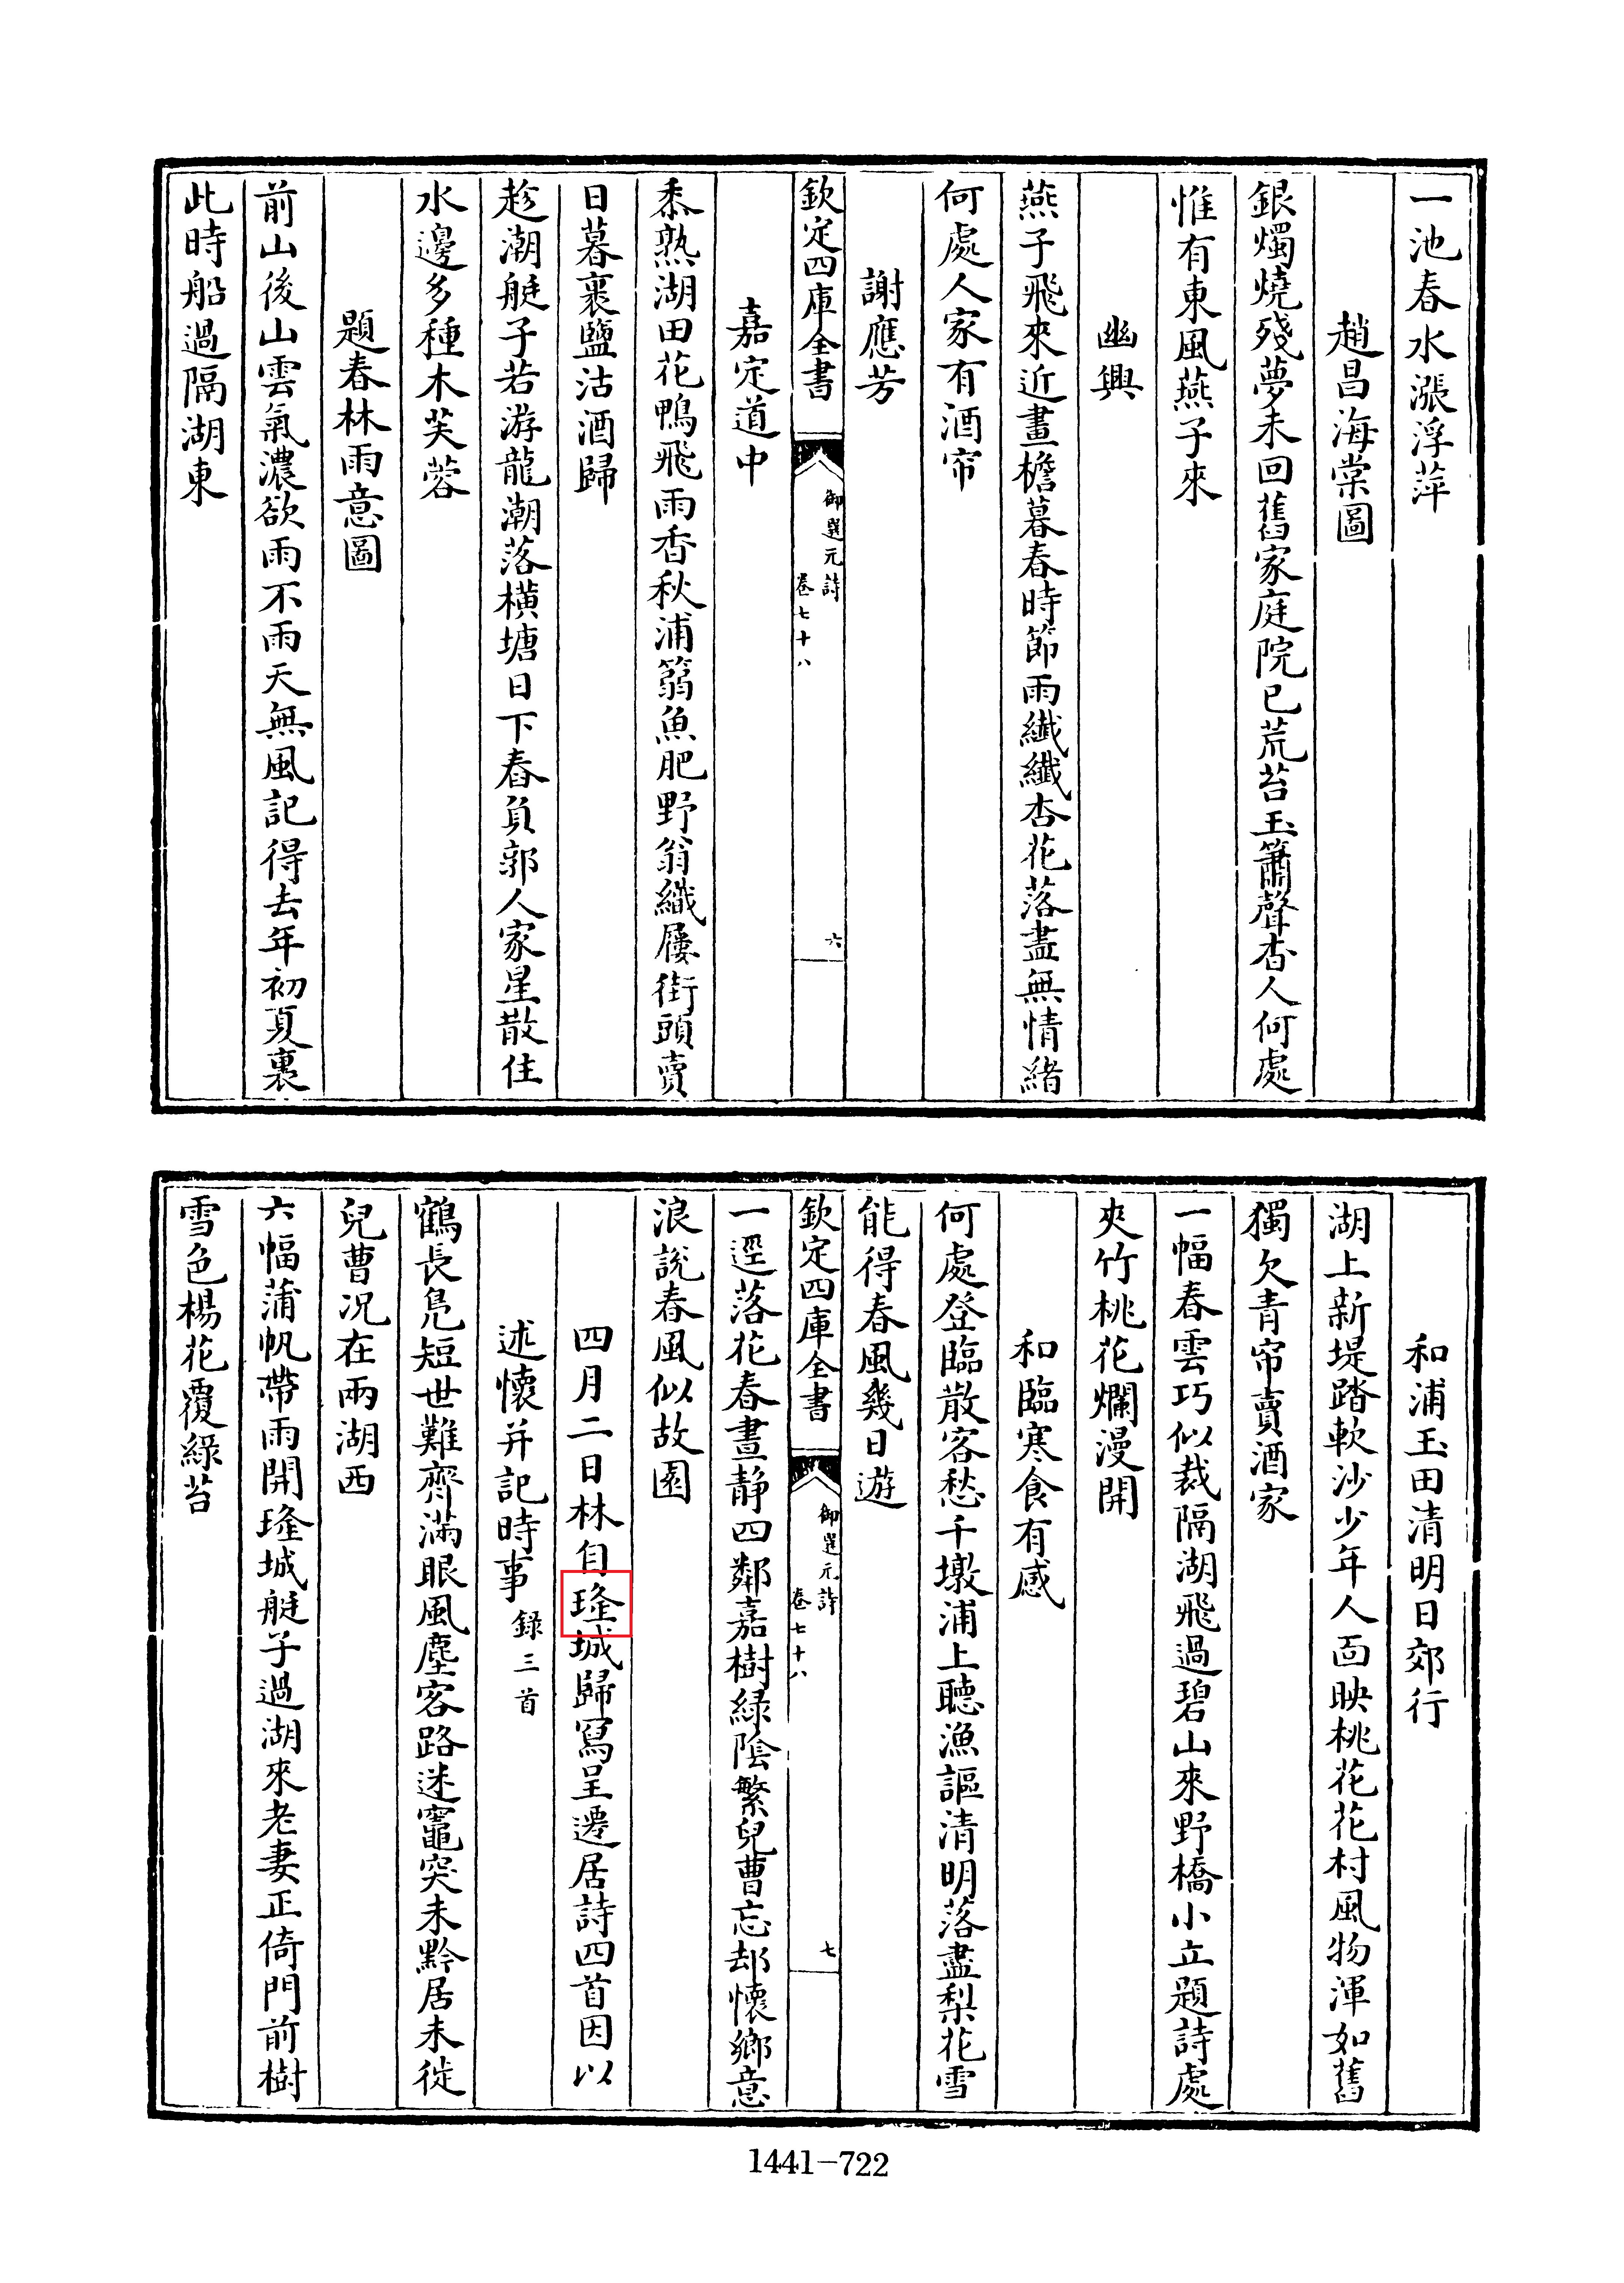 一池春水漲浮萍
趙昌海棠圖
銀燭燒殘夢未回舊家庭院已荒苔玉簫聲杳人何處
惟有東風燕子來
幽興
燕子飛來近畫檐暮春時節雨纖纖杏花落盡無情緒
何處人家有酒帘
謝應芳
欽定四庫全書
御選元詩
卷七十八
六
嘉定道中
黍熟湖田花鴨飛雨香秋浦蒻魚肥野翁織屨街頭賣
日暮裹鹽沽酒歸
趁潮艇子若游龍潮落橫塘日下舂負郭人家星散住
水邊多種木芙蓉
題春林雨意圖
前山後山雲氣濃欲雨不雨天無風記得去年初夏裏
此時船過隔湖東
和浦玉田清明日郊行
湖上新堤踏軟沙少年人面映桃花花村風物渾如舊
獨欠青帘賣酒家
一幅春雲巧似裁隔湖飛過碧山來野橋小立題詩處
夾竹桃花爛漫開
和臨寒食有感
何處登臨散客愁千墩浦上聽漁謳清明落盡梨花雪
能得春風幾日遊
欽定四庫全書
御選元詩
卷七十八
七
一逕落花春晝靜四鄰嘉樹綠陰繁兒曹忘却懷鄉意
浪說春風似故園
四月二日林自城歸寫呈遷居詩四首因以
述懷并記時事錄三首
鶴長鳧短世難齊滿眼風塵客路迷竈突未黔居未徙
兒曹况在兩湖西
六幅蒲帆帶雨開城艇子過湖來老妻正倚門前樹
雪色楊花覆綠苔
1441-722